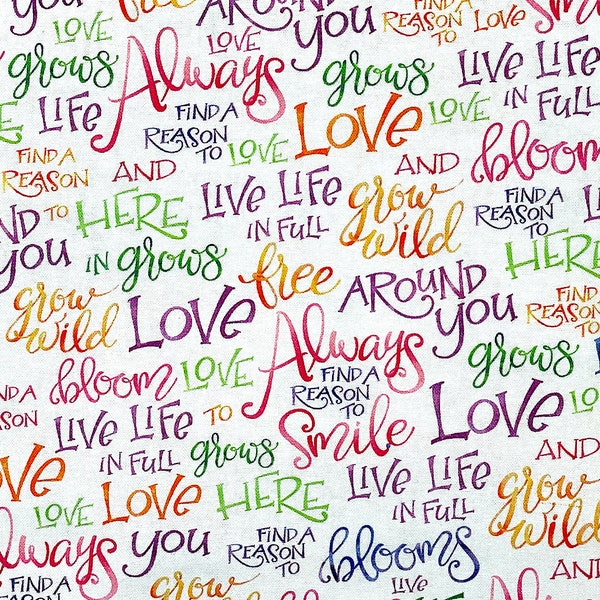 YOU
LOVE
LOVE
AROUND
YOU
REASON
TO
Love
Smile
grows
Always
grows
LIVE LIFE
IN FULL
HERE
LIFE
FIND A
REASON
TO
LOVE
LOVE
LOVE
FIND A
REASON
AND
AND
bloom
TO
HERE
LIVE LIFE
IN FULL
grow
wild
FIND A
REASON
TO
HERE
YOU
IN grows
free
AROUND
YOU
FIND A
REASON
TO
grow
wild
LOVE
Always
grows
FIND A
REASON
bloom
LOVE
FIND A
REASON
TO
Smile
LOVE
LOVE
LIVE LIFE
IN FULL
TO
grows
AND
LOVE
LOVE
HERE
LIVE LIFE
IN FULL
grow
wild
Always
YOU
FIND A
REASON
TO
blooms
FIND A
REASON
TO
grow
LIVE
Always